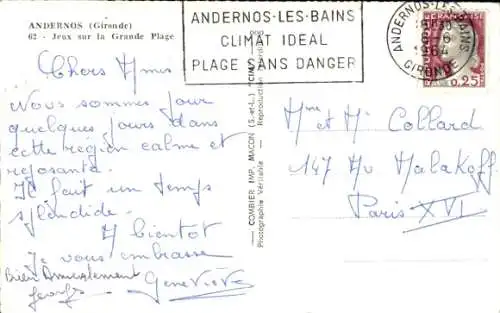 ANDERNOS (Gironde)
62 - Jeux sur la Grande Plage
ANDERNOS-LES-BAINS
CLIMAT IDEAL
PLAGE SANS DANGER
ANDERNOS-LES-BAINS
8-6
1964
GIRONDE
0,25
Chers Amis
Nous sommes pour
quelques jours dans
cette région calme et
reposante.
Il fait un temps
splendide.
A bientot
Je vous embrasse
Geneviève
Bien Amicalement
COMBIER IMP. MACON (S.-et-L.) "CIM"
Photographie Véritable - Reproduction
Mme et Mr Collard
147 Av Malakoff
Paris XVI